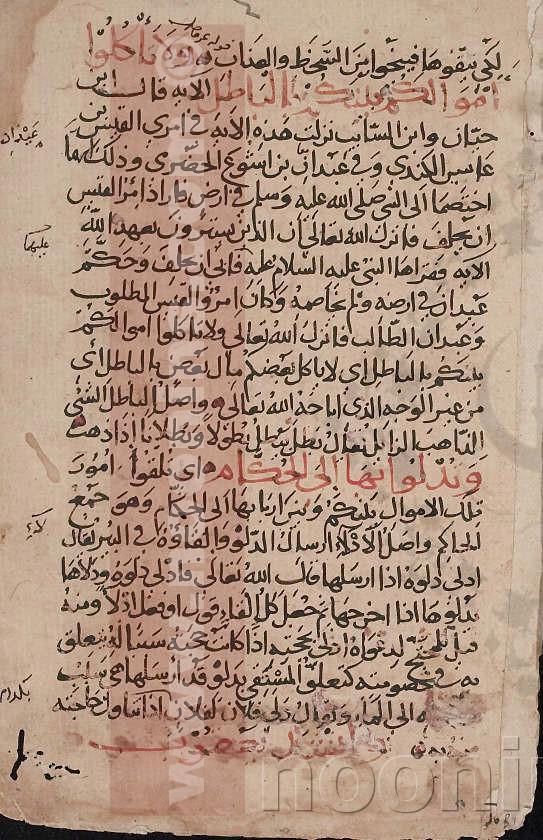 لكي يتقوها فينجوا من السخط والعذاب قوله عز وجل ولا تاكلوا
اموالكم بينكم بالباطل الايه قال ابن
حيان وابن السايب نزلت هذه الايه في امرئ القيس بن
عابس الكندي وفي عبدان بن اشوع الحضرمي وذلك انهما
اختصما الى النبي صلى الله عليه وسلم في ارض فاراد امرؤ القيس
ان يحلف فانزل الله تعالى ان الذين يشترون بعهد الله
الايه فقراها النبي عليه السلام عليهما فابى ان يحلف وحكم
عبدان في ارضه ولم يخاصمه وكان امرؤ القيس المطلوب
وعبدان الطالب فانزل الله تعالى ولا تاكلوا اموالكم
بينكم بالباطل اي لا ياكل بعضكم مال بعض بالباطل اي
من غير الوجه الذي اباحه الله تعالى واصل الباطل الشئ
الذاهب الزايل يقال بطل يبطل بطولا وبطلانا اذا ذهب
وتدلوا بها الى الحكام اي تلقوا امور
تلك الاموال بينكم وبين اربابها الى الحكام وهو جمع
الحاكم واصل الادلاء ارسال الدلو والقاؤه في البئر يقال
ادلى دلوه اذا ارسلها قال الله تعالى فادلى دلوه ودلاها
يدلوها اذا اخرجها ثم جعل كل القاء قول او فعل ادلاء ومنه
قيل للمحتج لدعواه ادلى بحجته اذا كانت حجته سببا له يتعلق
به في خصومته كتعلق المستقي بدلو قد ارسلها هي سبب
الى الماء ويقال دلى فلان لفلان اذا تناول حاجته
عبدان
عليهما